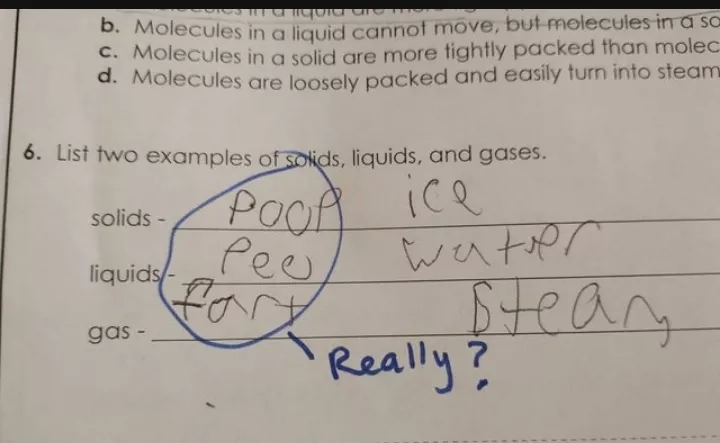 b. Molecules in a liquid cannot move, but molecules in a so
c. Molecules in a solid are more tightly packed than molec
d. Molecules are loosely packed and easily turn into steam
6. List two examples of solids, liquids, and gases.
solids - Poop ice
liquids - Pee water
gas - fart Steam
Really?